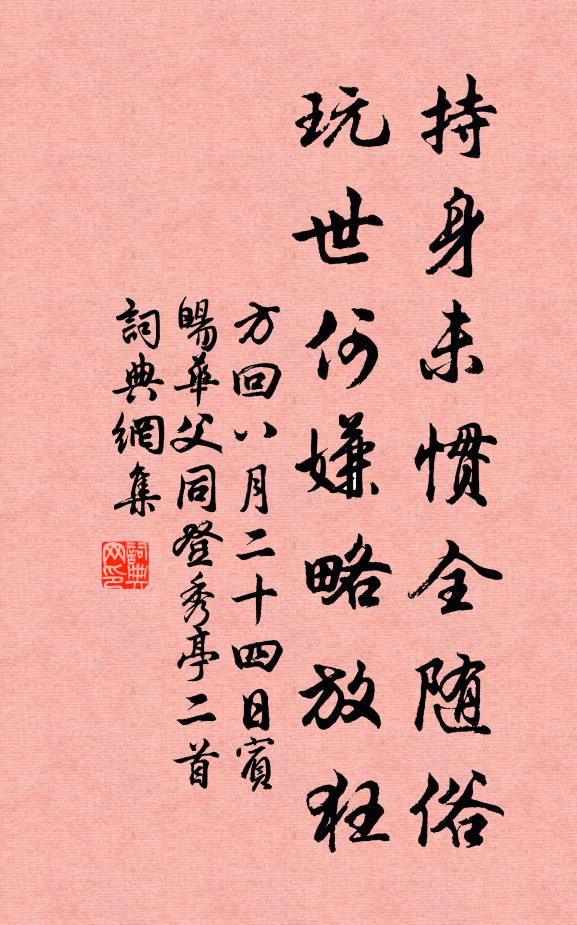 持身未惯全随俗
玩世何嫌略放狂
方回八月二十四日賓
暘華父同登秀亭二首
詞典網集
詞典
网印